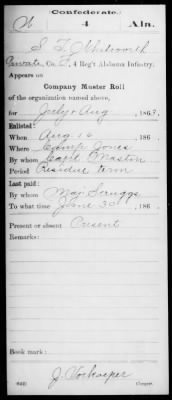 Confederate.
4 Ala.
S. F. Whitworth
Private, Co. F, 4 Reg't Alabama Infantry.
Appears on
Company Muster Roll
of the organization named above,
for July & Aug, 186
Enlisted:
When Aug 16, 186
Where Camp Jones
By whom Capt
Period Residue term
Last paid:
By whom Maj Scruggs
To what time June 30, 186
Present or absent Present
Remarks:
Book mark:
(642) Copyist.